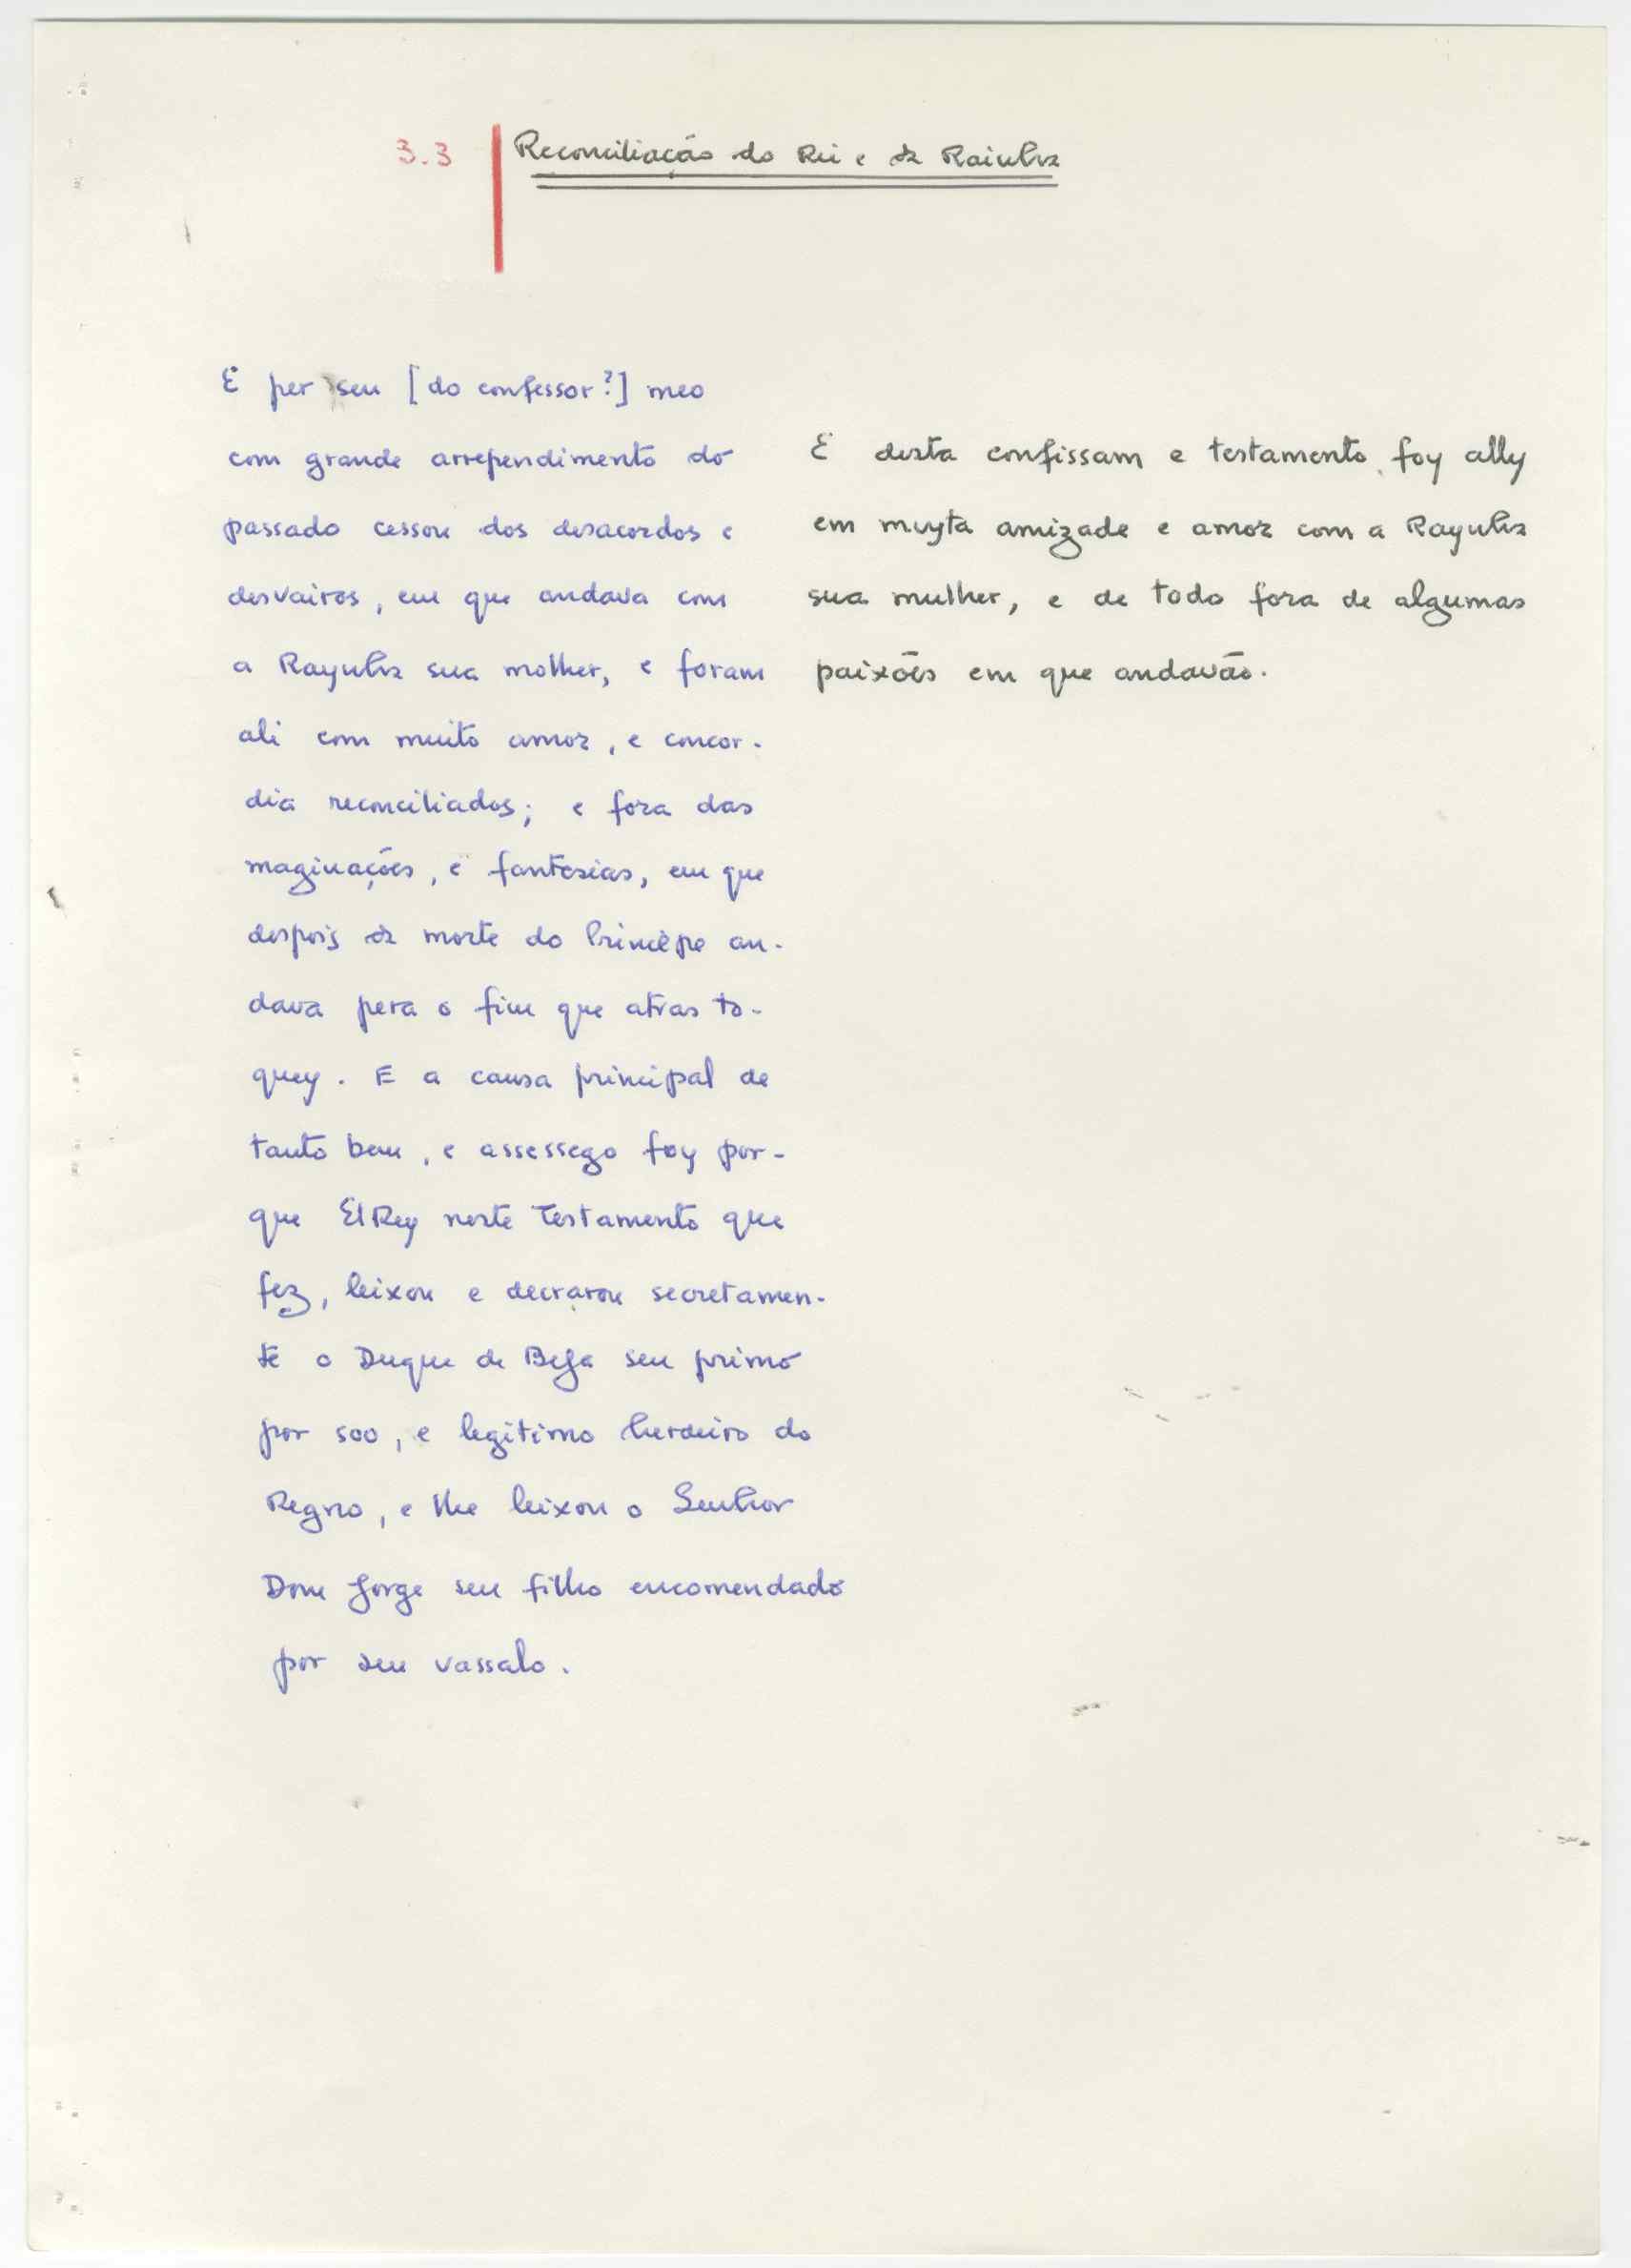 3.3 Reconciliação do Rei e da Rainha
E per seu [do confessor?] meo
com grande arrependimento do
passado cessou dos desacordos e
desvairos, em que andava com
a Raynha sua molher, e foram
ali com muito amor, e concor-
dia reconciliados; e fora das
maginações, e fantesias, em que
despois da morte do Princepe an-
dava pera o fim que atras to-
quey. E a causa principal de
tanto bem, e assessego foy por-
que ElRey neste Testamento que
fez, leixou e decrarou secretamen-
te o Duque de Beja seu primo
por soo, e legitimo herdeiro do
Regno, e lhe leixou o Senhor
Dom Jorge seu filho encomendado
por seu vassalo.
E desta confissam e testamento foy ally
em muyta amizade e amor com a Raynha
sua mulher, e de todo fora de algumas
paixões em que andavão.